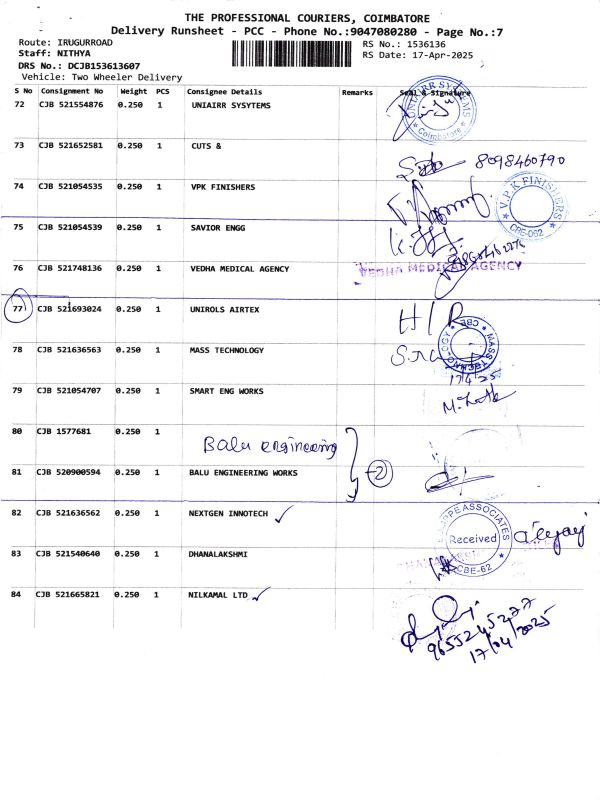 THE PROFESSIONAL COURIERS, COIMBATORE
Delivery Runsheet - PCC - Phone No.:9047080280 - Page No.:7
Route: IRUGURROAD
Staff: NITHYA
DRS No.: DCJB153613607
Vehicle: Two Wheeler Delivery
RS No.: 1536136
RS Date: 17-Apr-2025
S No Consignment No Weight PCS Consignee Details Remarks Seal & Signature
72 CJB 521554876 0.250 1 UNIAIRR SYSYTEMS
UNIAIRR SYSTEMS Coimbatore
73 CJB 521652581 0.250 1 CUTS &
8098460790
74 CJB 521054535 0.250 1 VPK FINISHERS
V.P.K FINISHERS CBE-062
75 CJB 521054539 0.250 1 SAVIOR ENGG
76 CJB 521748136 0.250 1 VEDHA MEDICAL AGENCY
VEDHA MEDICAL AGENCY
77 CJB 521693024 0.250 1 UNIROLS AIRTEX
H/R
78 CJB 521636563 0.250 1 MASS TECHNOLOGY
MASS TECHNOLOGY CBE
17/4/25
79 CJB 521054707 0.250 1 SMART ENG WORKS
80 CJB 1577681 0.250 1
Balu engineering
81 CJB 520900594 0.250 1 BALU ENGINEERING WORKS
2
82 CJB 521636562 0.250 1 NEXTGEN INNOTECH
ASSOCIATES Received CBE-62
83 CJB 521540640 0.250 1 DHANALAKSHMI
84 CJB 521665821 0.250 1 NILKAMAL LTD
9655245277
17/04/2025